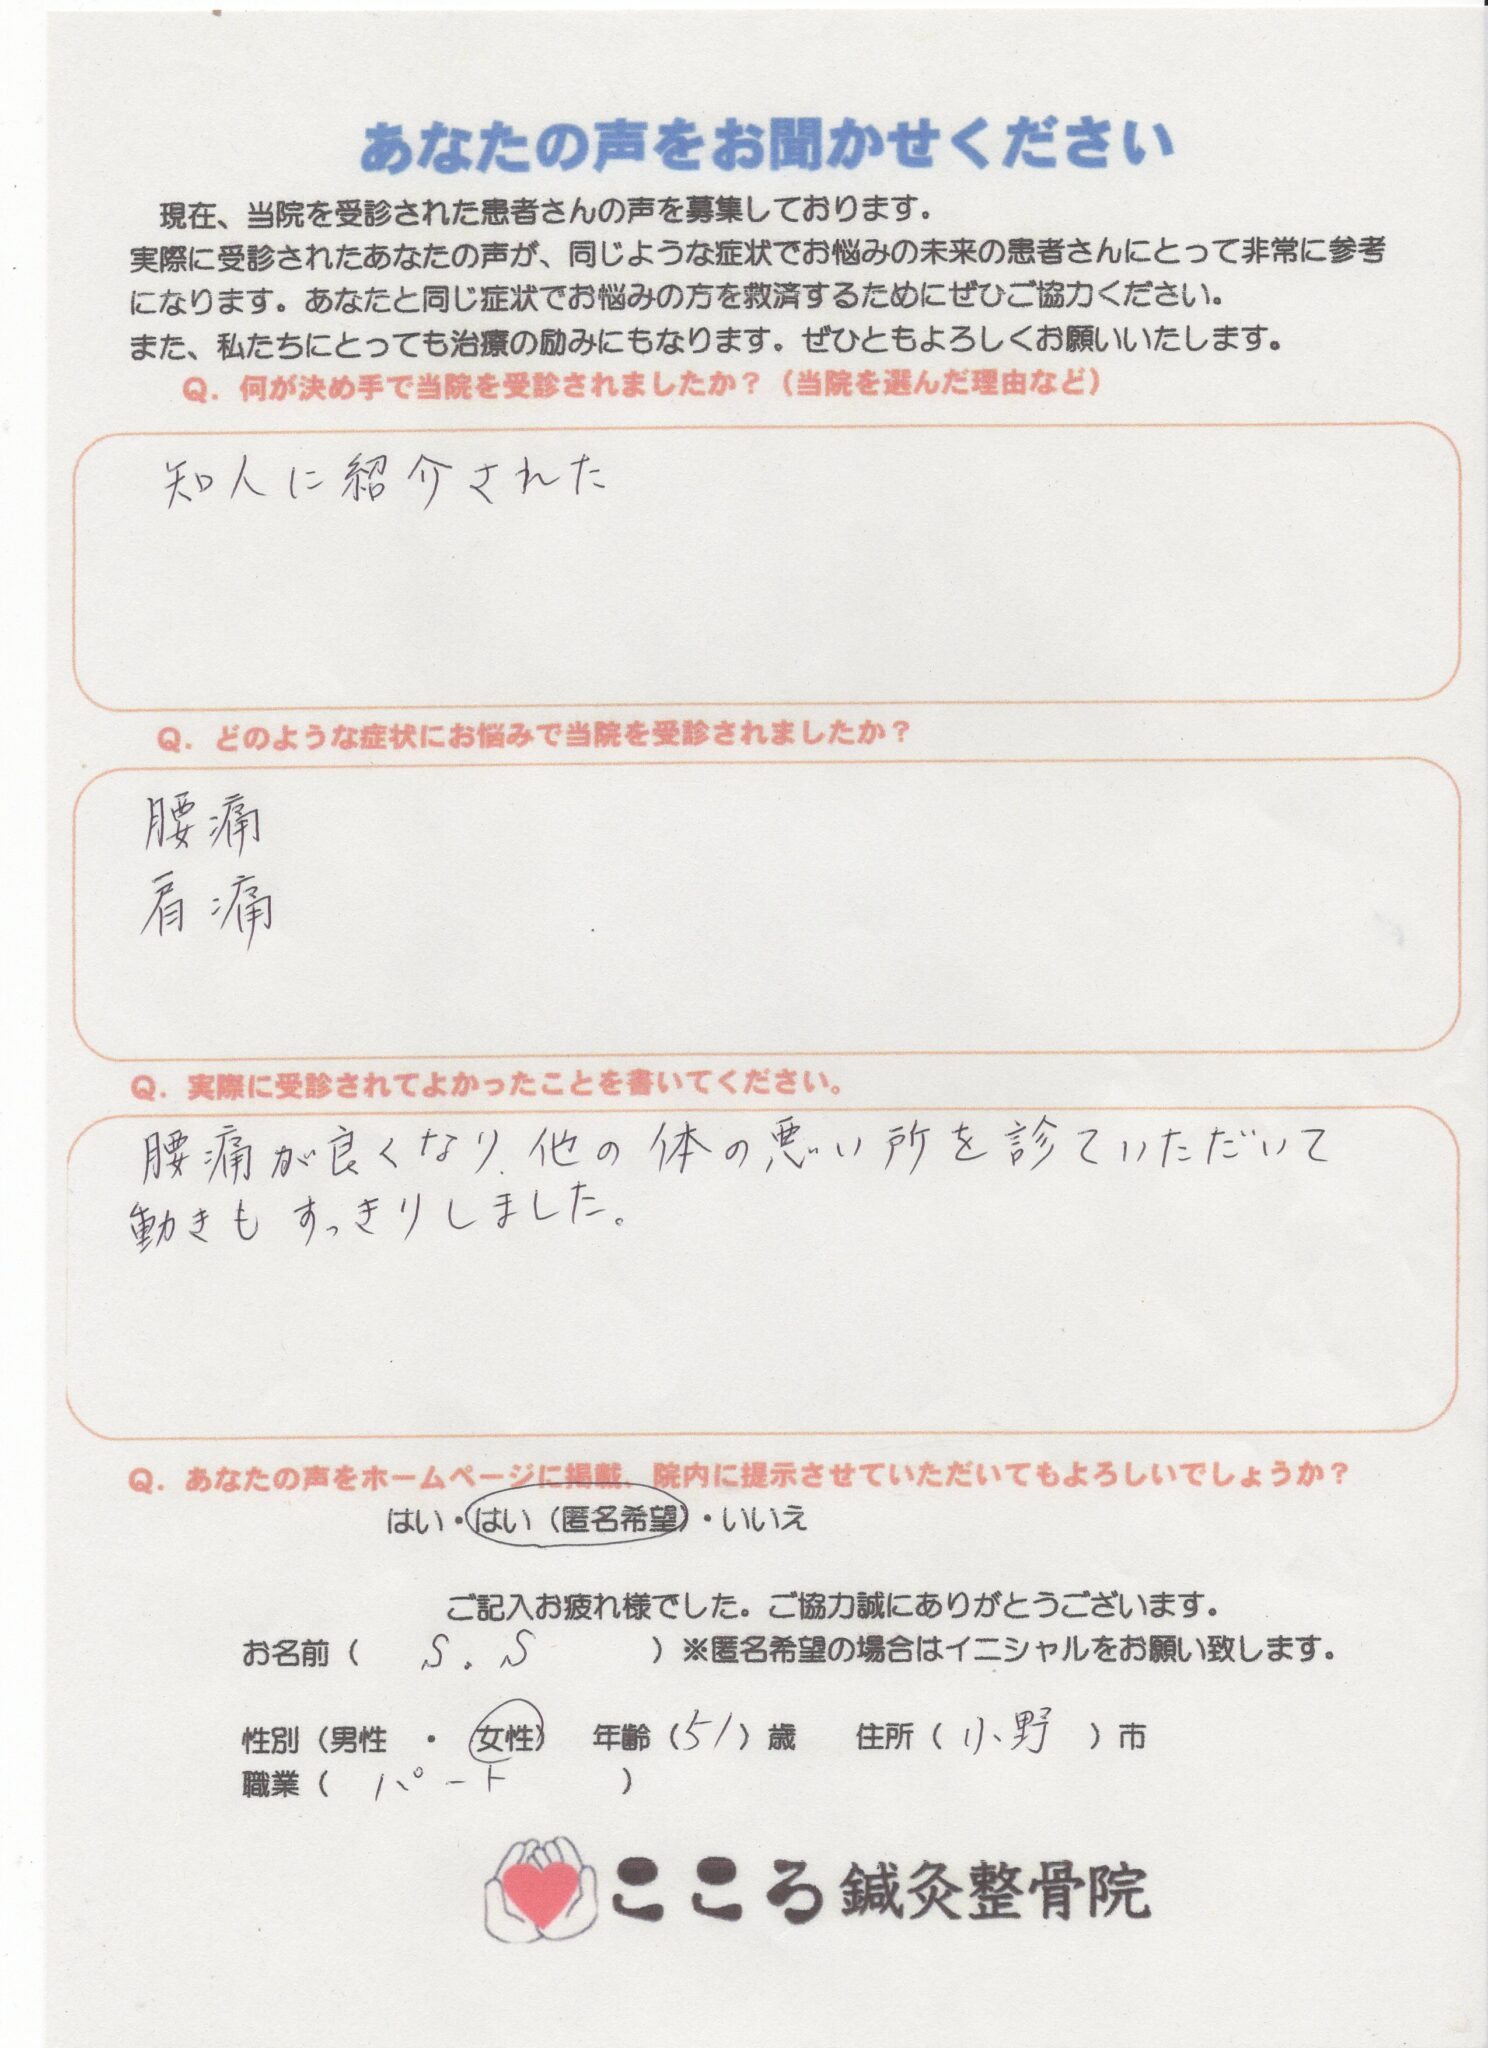 あなたの声をお聞かせください
現在、当院を受診された患者さんの声を募集しております。
実際に受診されたあなたの声が、同じような症状でお悩みの未来の患者さんにとって非常に参考
になります。あなたと同じ症状でお悩みの方を救済するためにぜひご協力ください。
また、私たちにとっても治療の励みにもなります。ぜひともよろしくお願いいたします。
Q．何が決め手で当院を受診されましたか？（当院を選んだ理由など）
知人に紹介された
Q．どのような症状にお悩みで当院を受診されましたか？
腰痛
肩痛
Q．実際に受診されてよかったことを書いてください。
腰痛が良くなり、他の体の悪い所を診ていただいて
動きもすっきりしました。
Q．あなたの声をホームページに掲載、院内に提示させていただいてもよろしいでしょうか？
はい・はい（匿名希望）・いいえ
ご記入お疲れ様でした。ご協力誠にありがとうございます。
お名前（ S.S ）※匿名希望の場合はイニシャルをお願い致します。
性別（男性 ・ 女性） 年齢（51）歳 住所（ 小野 ）市
職業（ パート ）
こころ鍼灸整骨院